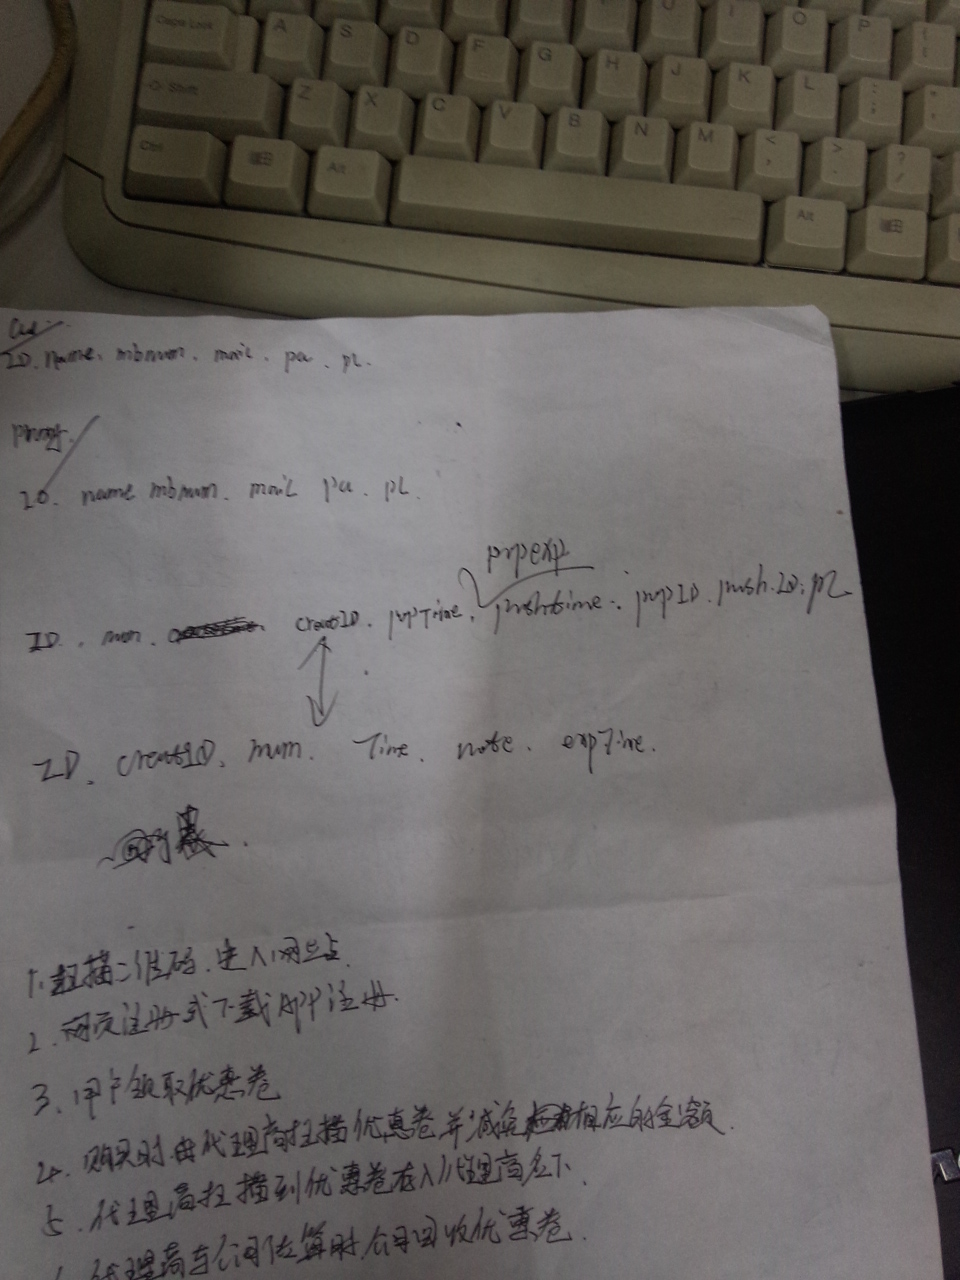 Caps Lock A S D F G H J K L : ;
U I O P
Shift Z X C V B N M < , > . ? /
Ctrl Alt Alt
ID. name. mbnum. mail. pa. pl.
ID. name mbnum. mail pa. pl.
prpexp
ID. num. creatID. prpTime. pushtime. prpID. push.ID. pl
ID. creatID. num. Time. note. expTime.
1. 扫描二维码.进入网站
2. 网页注册或下载APP注册.
3. 用户领取优惠卷
4. 购买时由代理商扫描优惠卷并减免相应的金额.
5. 代理商扫描到优惠卷存入代理商名下.
代理商与公司结算时,公司回收优惠卷.